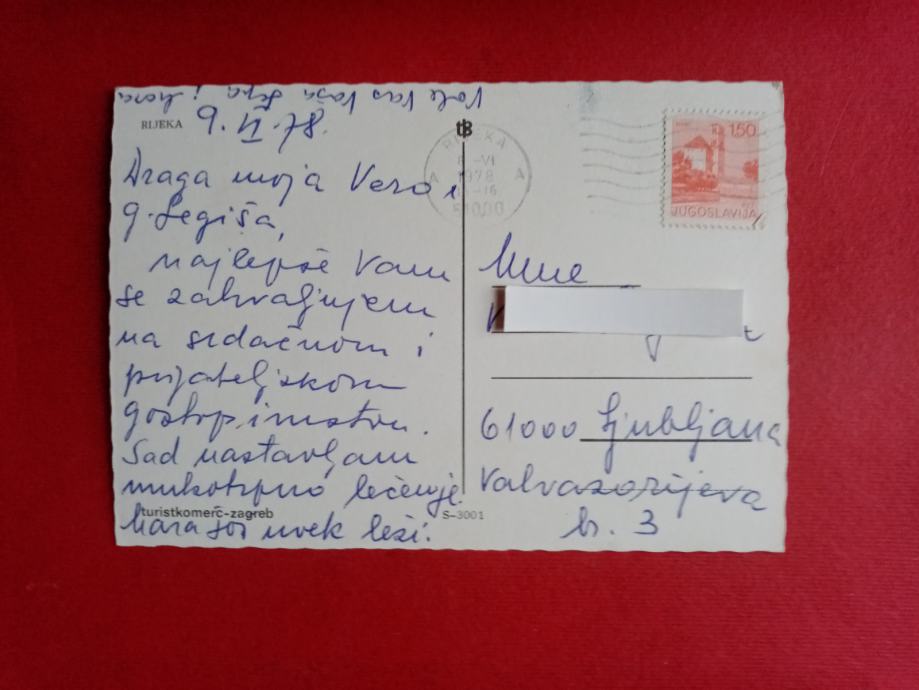 RIJEKA
9. VI. 78.
Draga moja Vero i
g. Legiša,
najlepše Vam
se zahvaljujem
na srdačnom i
prijateljskom
gostoprimstvu.
Sad nastavljam
mukotrpno lečenje.
Mara još uvek leži.
Vole Vas Vaša i Mara
turistkomerc-zagreb
S-3001
tk
RIJEKA
A A
-VI
1978
-16
51000
1.50
JUGOSLAVIJA
Mme
61000 Ljubljana
Valvazorijeva
br. 3